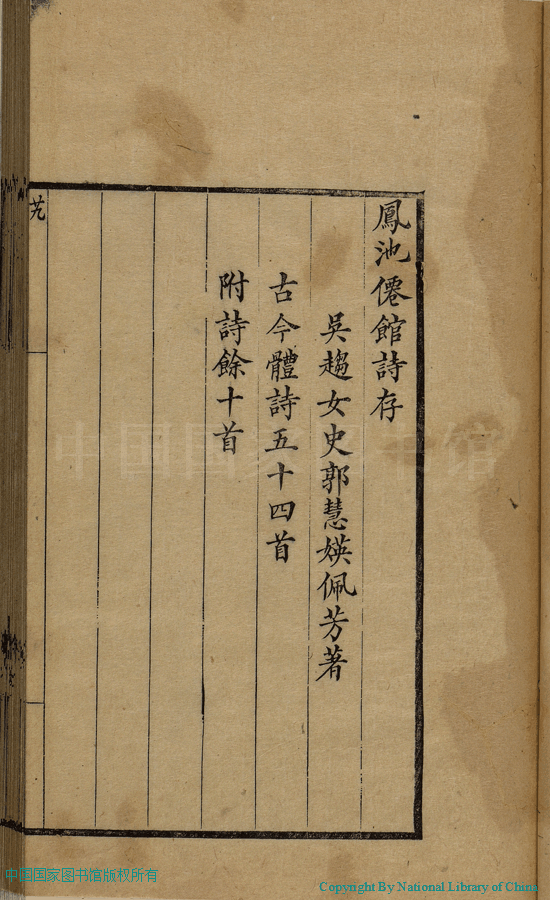 鳳池僊館詩存
吳趨女史郭慧媖佩芳著
古今體詩五十四首
附詩餘十首
中国国家图书馆
中国国家图书馆版权所有
Copyright By National Library of China